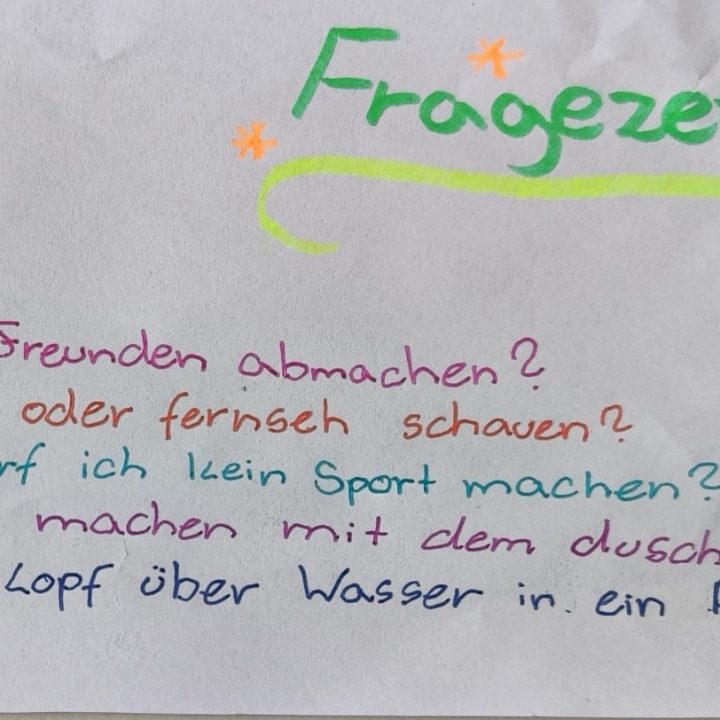 Frageze
Freunden abmachen?
oder fernseh schauen?
rf ich kein Sport machen?
machen mit dem dusch
Kopf über Wasser in. ein